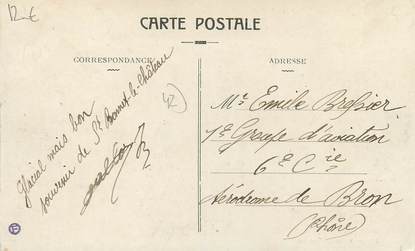 12 €
CARTE POSTALE
CORRESPONDANCE
ADRESSE
Glacial mais bon
souvenir de St Bonnet-le-Château
42
Mr Emile Bressier
7e Groupe d'aviation
6e Cie
Aérodrome de Bron
(Rhône)